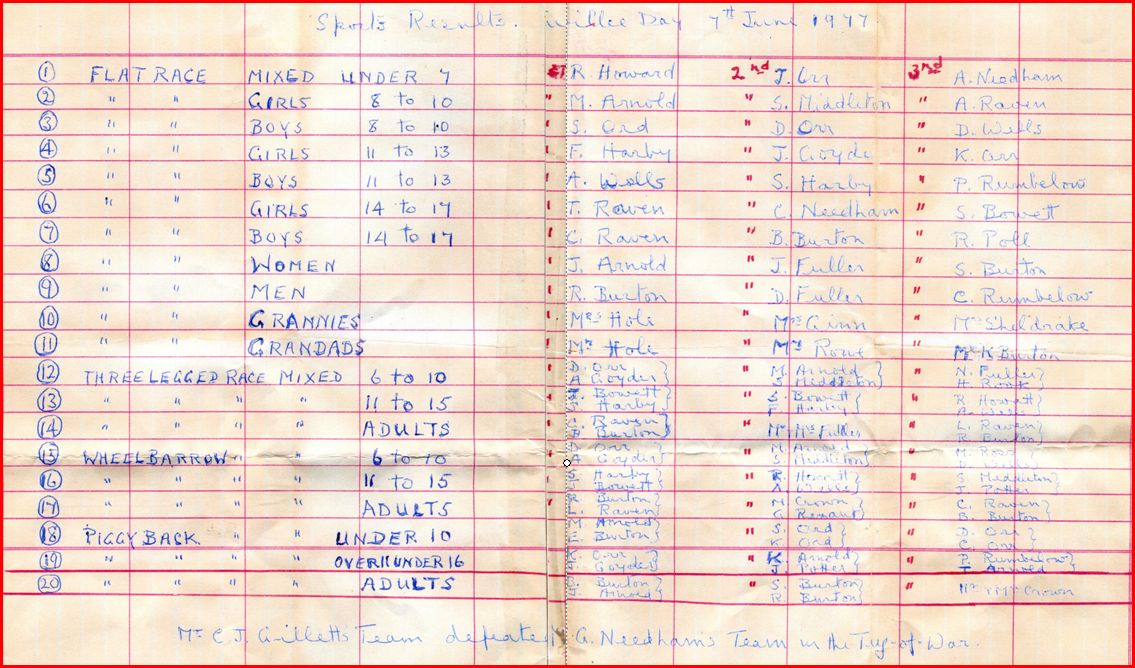 Sports Results. Day 7th June 1977
① FLAT RACE MIXED UNDER 7 R. Howard 2nd J. Orr 3rd A. Needham
② " " GIRLS 8 to 10 " M. Arnold " S. Middleton " A. Raven
③ " " BOYS 8 to 10 " S. Ord " D. Orr " D. Wells
④ " " GIRLS 11 to 13 " F. Harby " J. Goyde " K. Orr
⑤ " " BOYS 11 to 13 " A. Wells " S. Harby " P. Rumbelow
⑥ " " GIRLS 14 to 17 " T. Raven " C. Needham " S. Bowett
⑦ " " BOYS 14 to 17 " C. Raven " B. Burton " R. Poll
⑧ " " WOMEN " J. Arnold " J. Fuller " S. Burton
⑨ " " MEN " R. Burton " D. Fuller " C. Rumbelow
⑩ " " GRANNIES " Mrs Hole " Mrs Ginn " Mrs Sheldrake
⑪ " " GRANDADS " Mr Hole " Mr Rowe " Mr K Burton
⑫ THREE LEGGED RACE MIXED 6 to 10 " D. Orr A Goyder} " M. Arnold S Middleton} " N. Fuller} H. Rook}
⑬ " " " " 11 to 15 " Bowett} S. Harby} " S. Bowett} F Harby} " R. Howett}
⑭ " " " " ADULTS " Raven} B Burton} " Mr Mrs Fuller " L. Raven} R. Burton}
⑮ WHEELBARROW " " 6 to 10 D. Orr A Goyder} " M. Arnold S Middleton} " M. Ross
⑯ " " " " 11 to 15 " S. Harby} Bowett} " R. Howett} " S. Middleton} J. Potter
⑰ " " " " ADULTS " R. Burton} L. Raven} " M. Crown} G. " C. Raven} B. Burton}
⑱ PIGGY BACK " " UNDER 10 M. Arnold} E. Burton} " S. Ord} K. Ord} " D. Orr} C. Orr}
⑲ " " " " OVER 11 UNDER 16 K. Orr} J. Goyder} " K. Arnold} J. Potter} " P. Rumbelow} T. Arnold
⑳ " " " " ADULTS Burton} J. Arnold} " S. Burton} R. Burton} " Mr & Mrs Crown
Mr C. J. Gillett's Team defeated G. Needham's Team in the Tug-of-War.